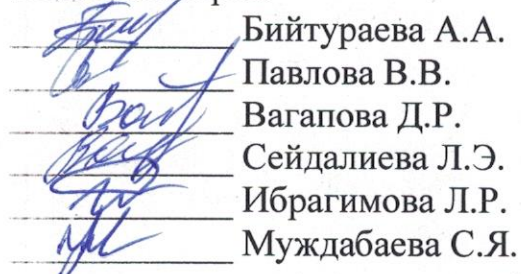 Бийтураева А.А.
Павлова В.В.
Вагапова Д.Р.
Сейдалиева Л.Э.
Ибрагимова Л.Р.
Муждабаева С.Я.